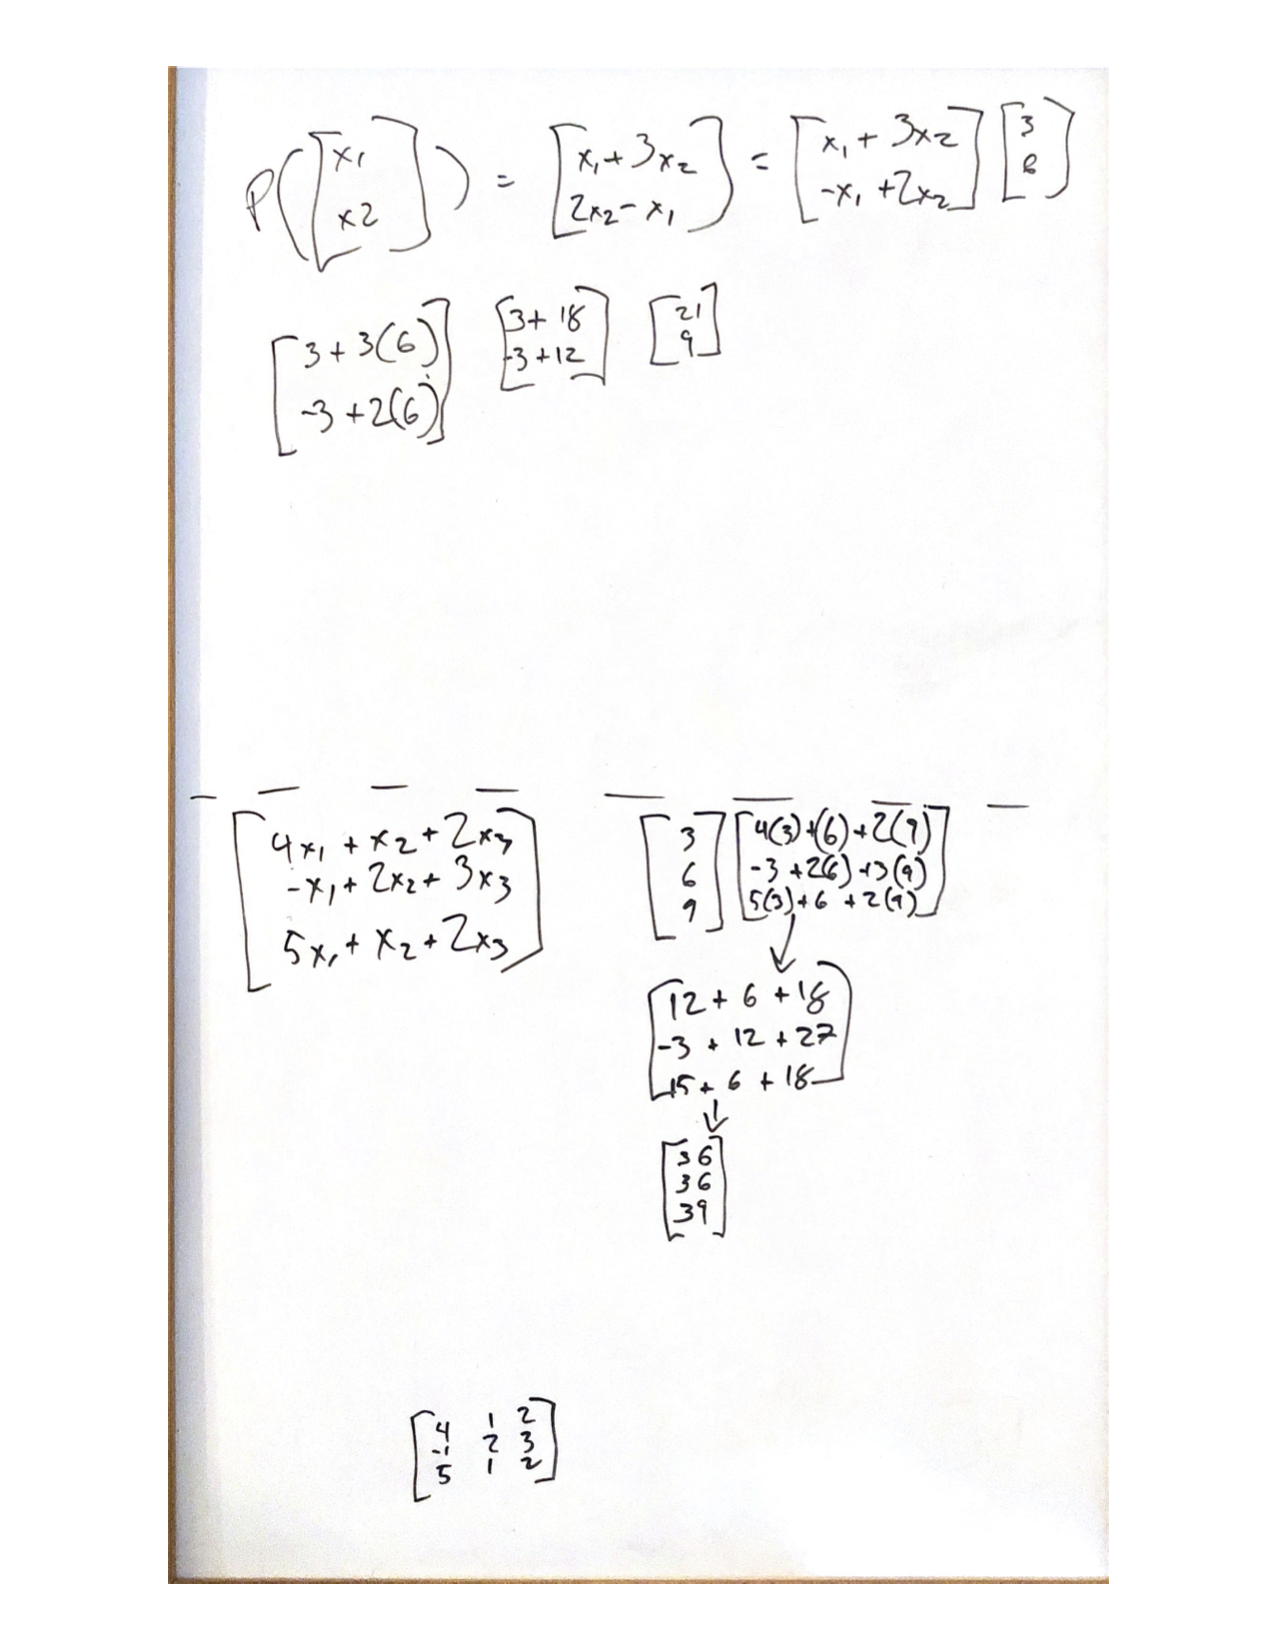 P([x1 x2]) = [x1 + 3x2 2x2 - x1] = [x1 + 3x2 -x1 + 2x2] [3 6]
[3 + 3(6) -3 + 2(6)] [3 + 18 -3 + 12] [21 9]
[4x1 + x2 + 2x3
-x1 + 2x2 + 3x3
5x1 + x2 + 2x3]
[3 6 9]
[4(3) + (6) + 2(9)
-3 + 2(6) + 3(9)
5(3) + 6 + 2(9)]
↓
[12 + 6 + 18
-3 + 12 + 27
15 + 6 + 18]
↓
[36
36
39]
[4 1 2
-1 2 3
5 1 2]